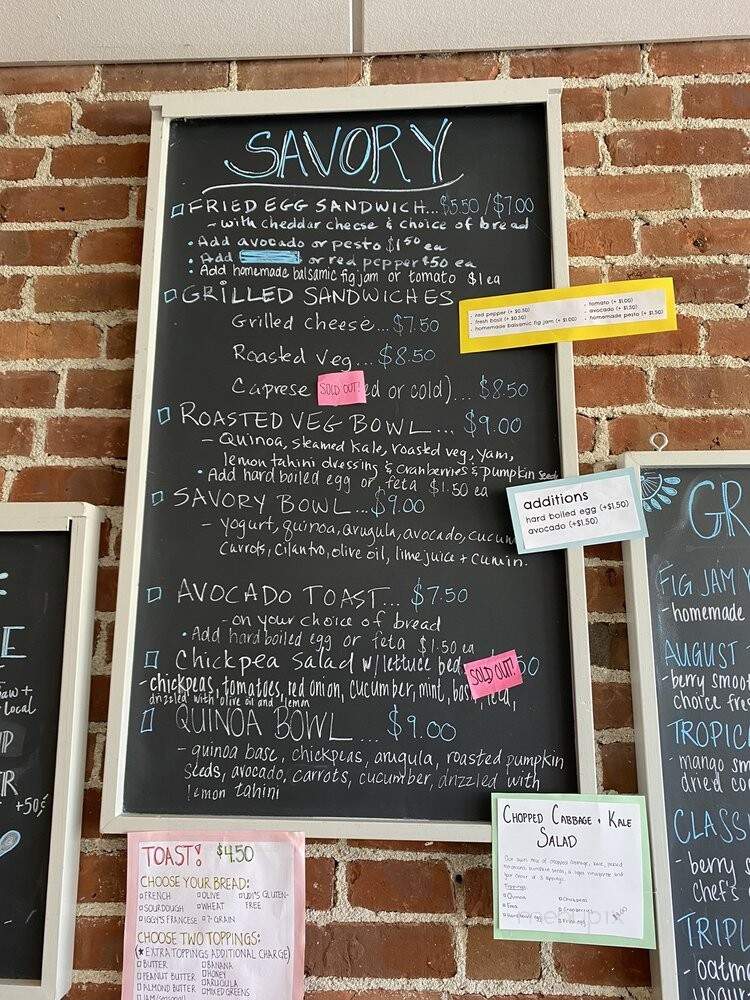 SAVORY
FRIED EGG SANDWICH...$5.50/$7.00
- with cheddar cheese & choice of bread
• Add avocado or pesto $1.50 ea
• Add or red pepper +$.50 ea
• Add homemade balsamic fig jam or tomato $1 ea
GRILLED SANDWICHES
Grilled cheese...$7.50
Roasted Veg...$8.50
Caprese SOLD OUT! or cold)...$8.50
- red pepper (+ $0.50)
- fresh basil (+ $0.50)
- homemade balsamic fig jam (+ $1.00)
- tomato (+ $1.00)
- avocado (+ $1.50)
- homemade pesto (+ $1.50)
ROASTED VEG BOWL...$9.00
- Quinoa, steamed kale, roasted veg, yam,
lemon tahini dressing & cranberries & pumpkin seeds
• Add hard boiled egg or feta $1.50 ea
SAVORY BOWL...$9.00
- yogurt, quinoa, arugula, avocado,
carrots, cilantro, olive oil, lime juice + cumin.
additions
hard boiled egg (+$1.50)
avocado (+$1.50)
AVOCADO TOAST... $7.50
- on your choice of bread
• Add hard boiled egg or feta $1.50 ea
Chickpea Salad w/ lettuce bed SOLD OUT!
- chickpeas, tomatoes, red onion, cucumber, mint,
drizzled with olive oil and lemon
QUINOA BOWL... $9.00
- quinoa base, chickpeas, arugula, roasted pumpkin
seeds, avocado, carrots, cucumber, drizzled with
lemon tahini
+ 50¢
TOAST! $4.50
CHOOSE YOUR BREAD:
FRENCH
SOURDOUGH
IGGY'S FRANCESE
OLIVE
WHEAT
7-GRAIN
UDI'S GLUTEN-
FREE
CHOOSE TWO TOPPINGS:
(*EXTRA TOPPINGS ADDITIONAL CHARGE)
BUTTER
PEANUT BUTTER
ALMOND BUTTER
JAM (seasonal)
BANANA
HONEY
ARUGULA
MIXED GREENS
CHOPPED CABBAGE + KALE
SALAD
Toppings
Quinoa
Feta
Hard boiled egg
Chickpeas
Cranberries
FIG JAM
- homemade
AUGUST
- berry smoo
choice fre
TROPIC
- mango sm
dried co
CLASS
- berry s
chef's
TRIPL
- oatm